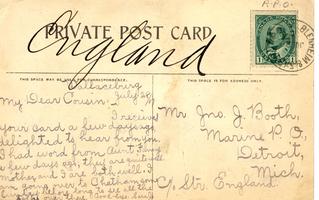 R.P.O.
PRIVATE POST CARD
England
BLENHEIM &
1 1
THIS SPACE MAY BE USED FOR CORRESPONDENCE.
THIS SPACE IS FOR ADDRESS ONLY.
Wallaceburg
July 29
My Dear Cousin.
I received
your card a few days ago,
delighted to hear from you.
I had word from Aunt
a few days ago, they are quite well
mother and I are both well. I
am going over to Chatham on
to see all the
over there
Mr Jno. J. Booth,
Marine P.O.
Detroit,
Mich.
c/o Str. England.